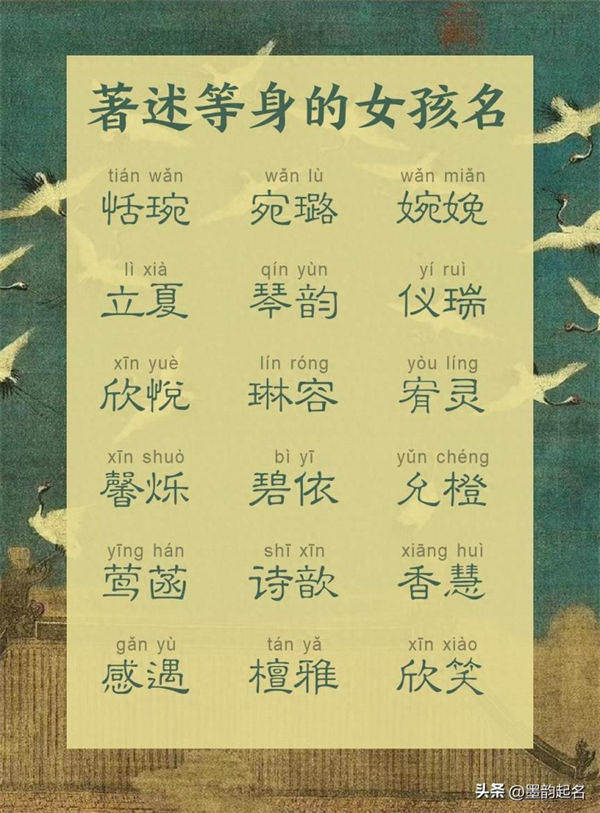 著述等身的女孩名
tián wǎn wǎn lù wǎn miǎn
恬琬 宛璐 婉娩
lì xià qín yùn yí ruì
立夏 琴韵 仪瑞
xīn yuè lín róng yòu líng
欣悦 琳容 宥灵
xīn shuò bì yī yǔn chéng
馨烁 碧依 允橙
yīng hán shī xīn xiāng huì
莺菡 诗歆 香慧
gǎn yù tán yǎ xīn xiào
感遇 檀雅 欣笑
头条 @墨韵起名